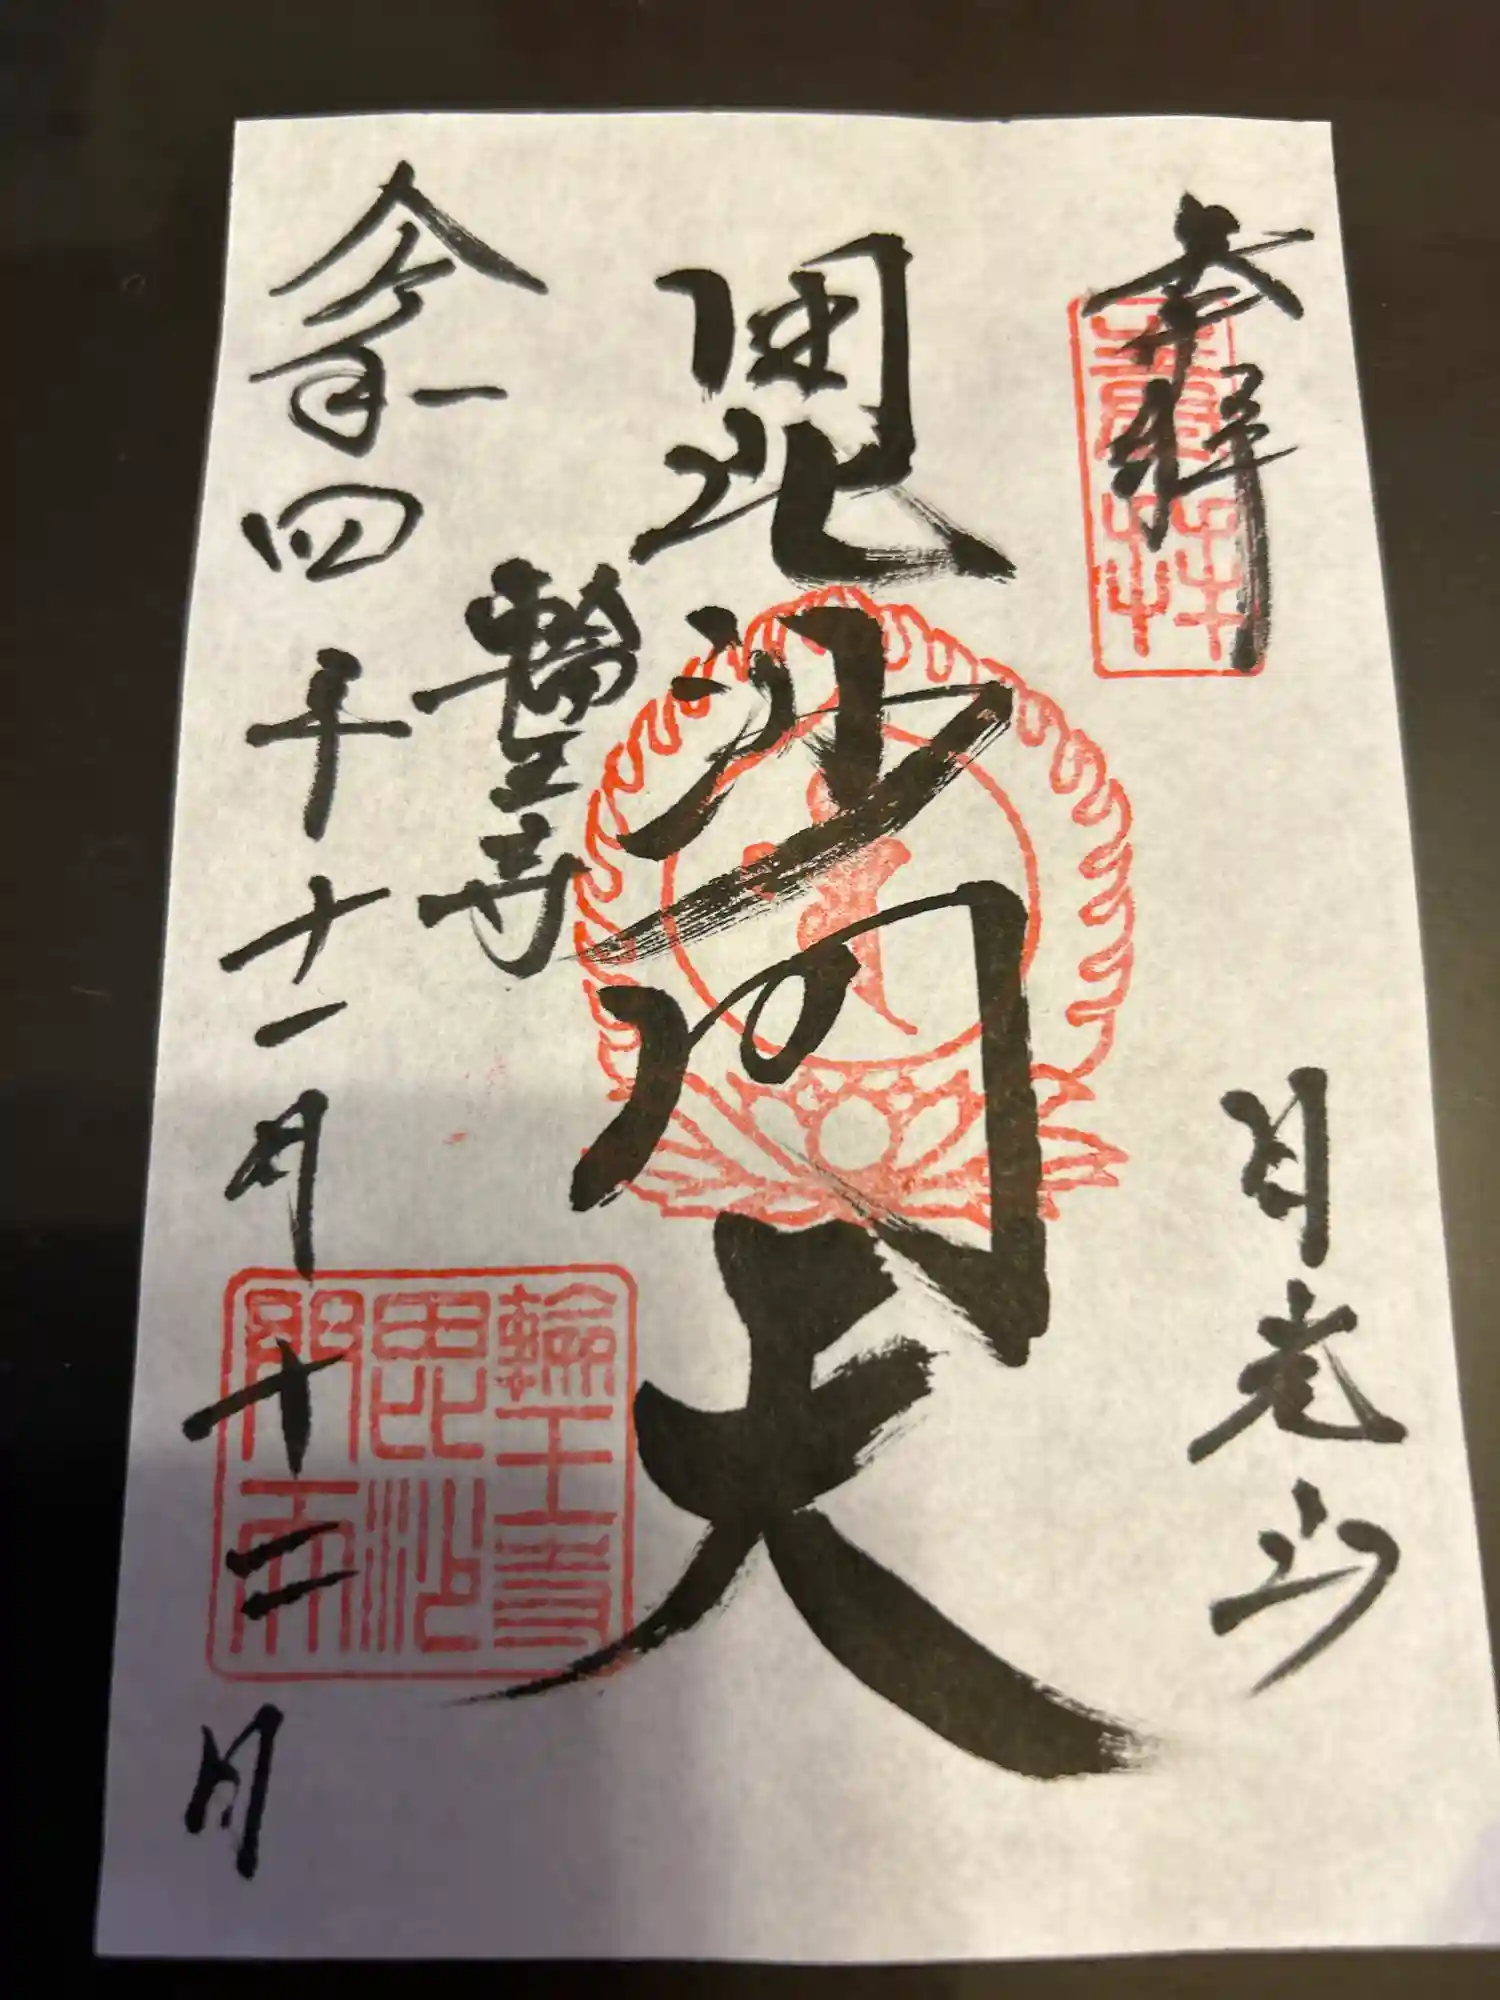 奉拝
日光山
毘沙門天
輪王寺
令和四年十一月十二日
輪王寺
毘沙
門天